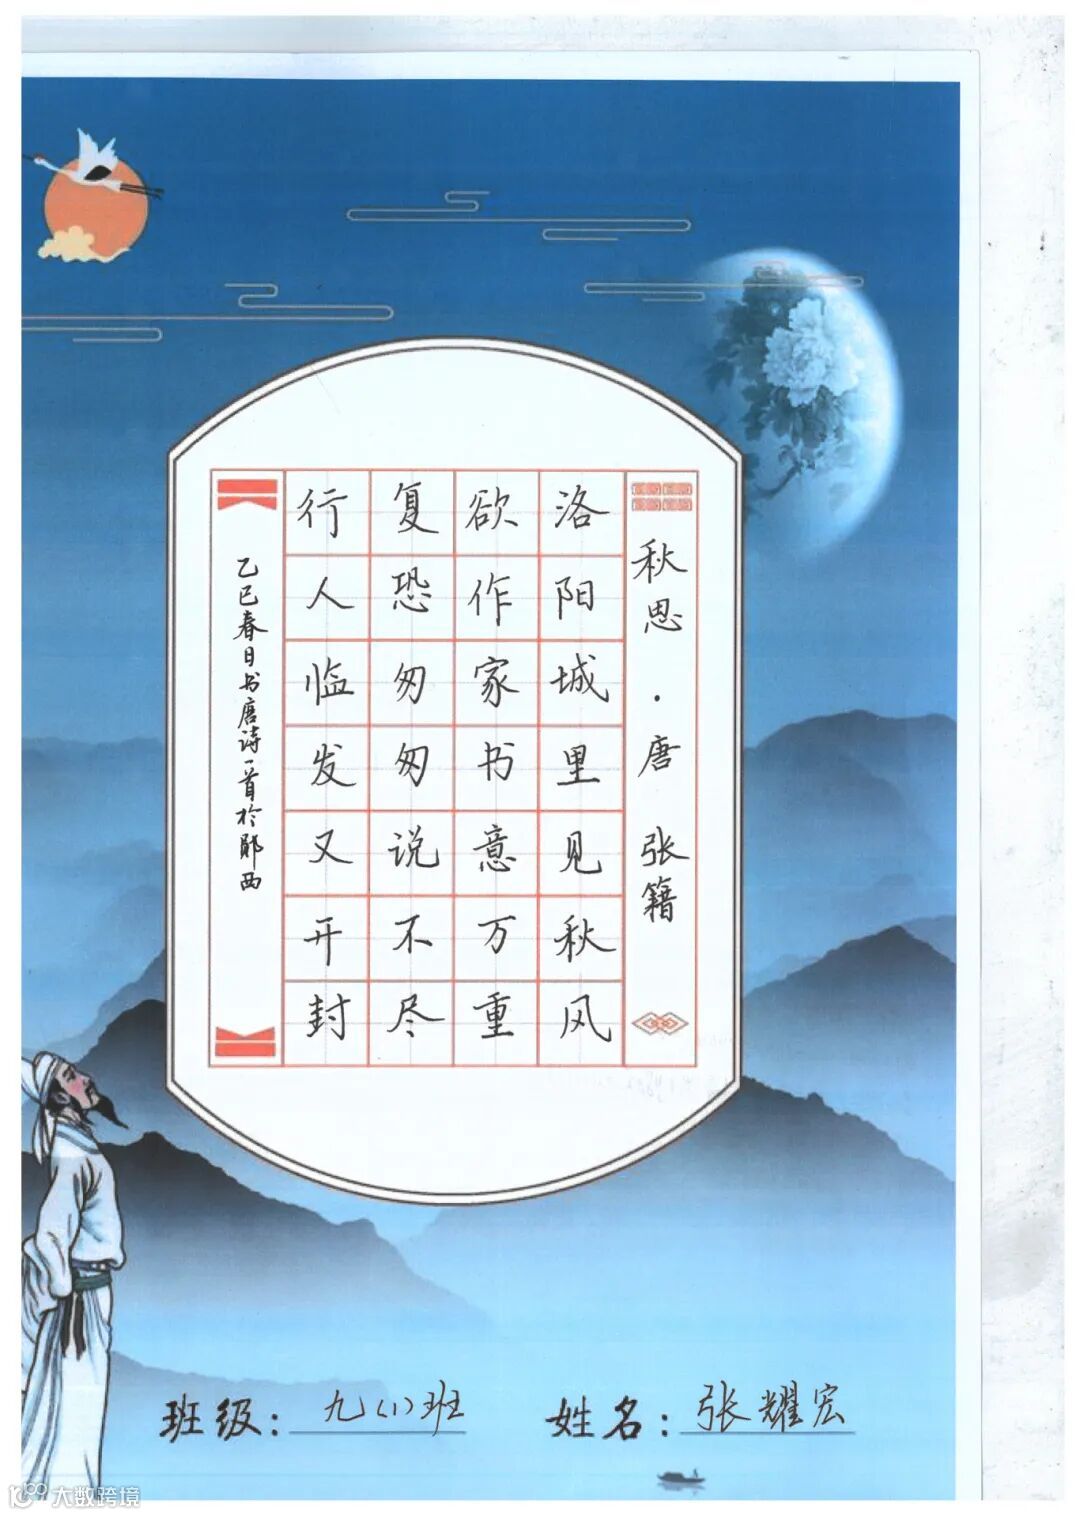 秋思·唐 张籍
洛阳城里见秋风
欲作家书意万重
复恐匆匆说不尽
行人临发又开封
乙巳春日书唐诗一首於郧西
班级：九(1)班
姓名：张耀宏
大数跨境